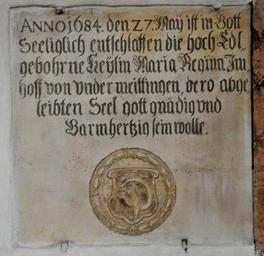 ANNO 1684. den 27. May ist in Gott
Seeliglich entschlaffen die hoch Edl„
gebohrne Heÿlin Maria Regina Im
hoff von vnder meittingen, dero abge
leibten Seel gott gnädig vnd
Barmhertzig sein wolle.